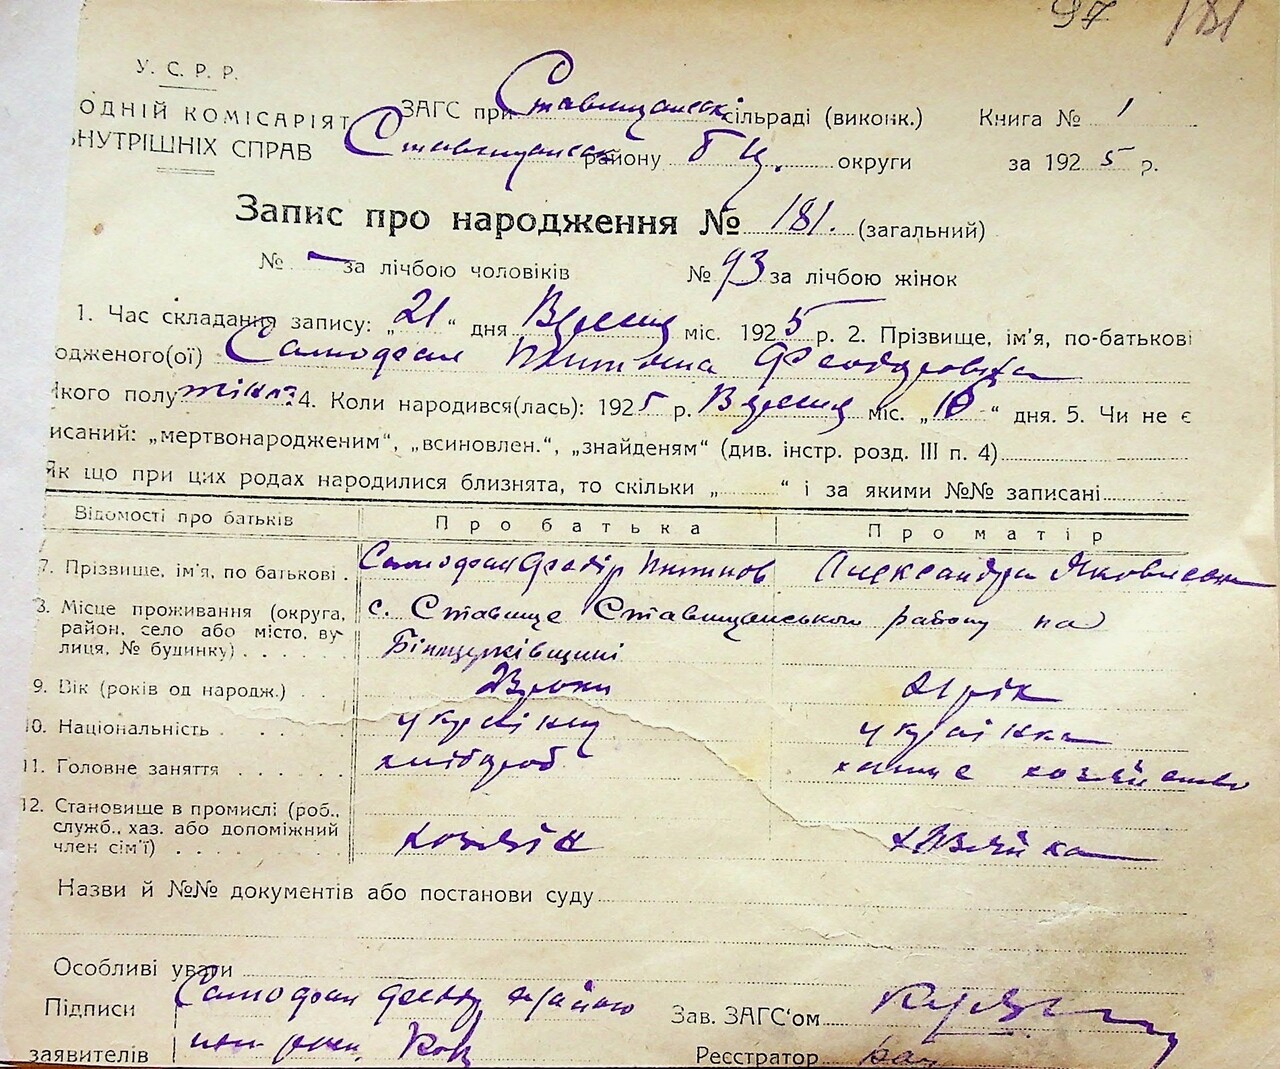 97 181
У. С. Р. Р.
ОДНІЙ КОМІСАРІЯТ ЗАГС при Ставищанск сільраді (виконк.) Книга № 1
ВНУТРІШНІХ СПРАВ Ставищанськ району БЦ. округи за 1925 р.
Запис про народження № 181. (загальний)
№ — за лічбою чоловіків № 93 за лічбою жінок
1. Час складання запису: „21“ дня Вересня міс. 1925 р. 2. Прізвище, ім'я, по-батькові
одженого(ої) Самофал Феодоровна
якого полу жіноч. 4. Коли народився(лась): 1925 р. Вересня міс. „18“ дня. 5. Чи не є
исаний: „мертвонародженим“, „всиновлен.“, „знайденям“ (див. інстр. розд. III п. 4)
Як що при цих родах народилися близнята, то скільки „ “ і за якими №№ записані
Відомості про батьків Про батька Про матір
7. Прізвище, ім'я, по батькові Самофал Федір Александра Яковлевна
8. Місце проживання (округа, с. Ставище Ставищанського району на
район, село або місто, ву-
лиця, № будинку) Білоцерківщині
9. Вік (років од народж.) 23 роки 21 рік
10. Національність українец українка
11. Головне заняття хлібороб хатнє хозяйство
12. Становище в промислі (роб.,
служб., хаз. або допоміжний хозяїн хозяйка
член сім'ї)
Назви й №№ документів або постанови суду
Особливі уваги
Підписи Самофал
заявителів
Зав. ЗАГС'ом
Реєстратор